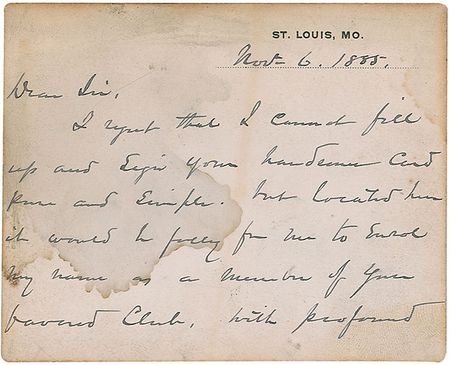 ST. LOUIS, MO.
Nov 6. 1885.
Dear Sir,
I regret that I cannot fill
up and Sign your handsome Card
Pure and Simple. but located here
it would be folly for me to Enrol
my name as a member of your
favored Club, with profound